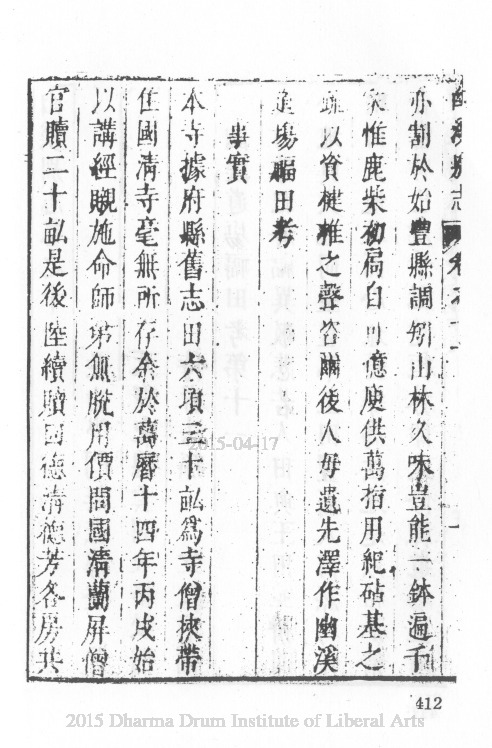 幽溪別志 卷之
亦割於始豐縣調絕山林久味豈能一鉢遍千
家惟鹿柴初扃白 憶庾供萬指用紀砧基之
疏以資楗椎之聲咨爾後人毋遺先澤作幽溪
道場福田考
事實
本寺據府縣舊志田六項三十畝爲寺僧挾帶
住國清寺毫無所存余於萬曆十四年丙戌始
以講經䞋施命師弟無脫用價問國清蘭屏僧
官贖二十畝是後陸續贖國德清德芳各房共
2015-04-17
412
2015 Dharma Drum Institute of Liberal Arts